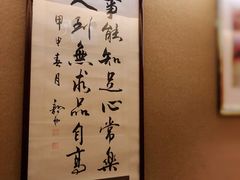 事能知足心常樂
人到無求品自高
甲申春月